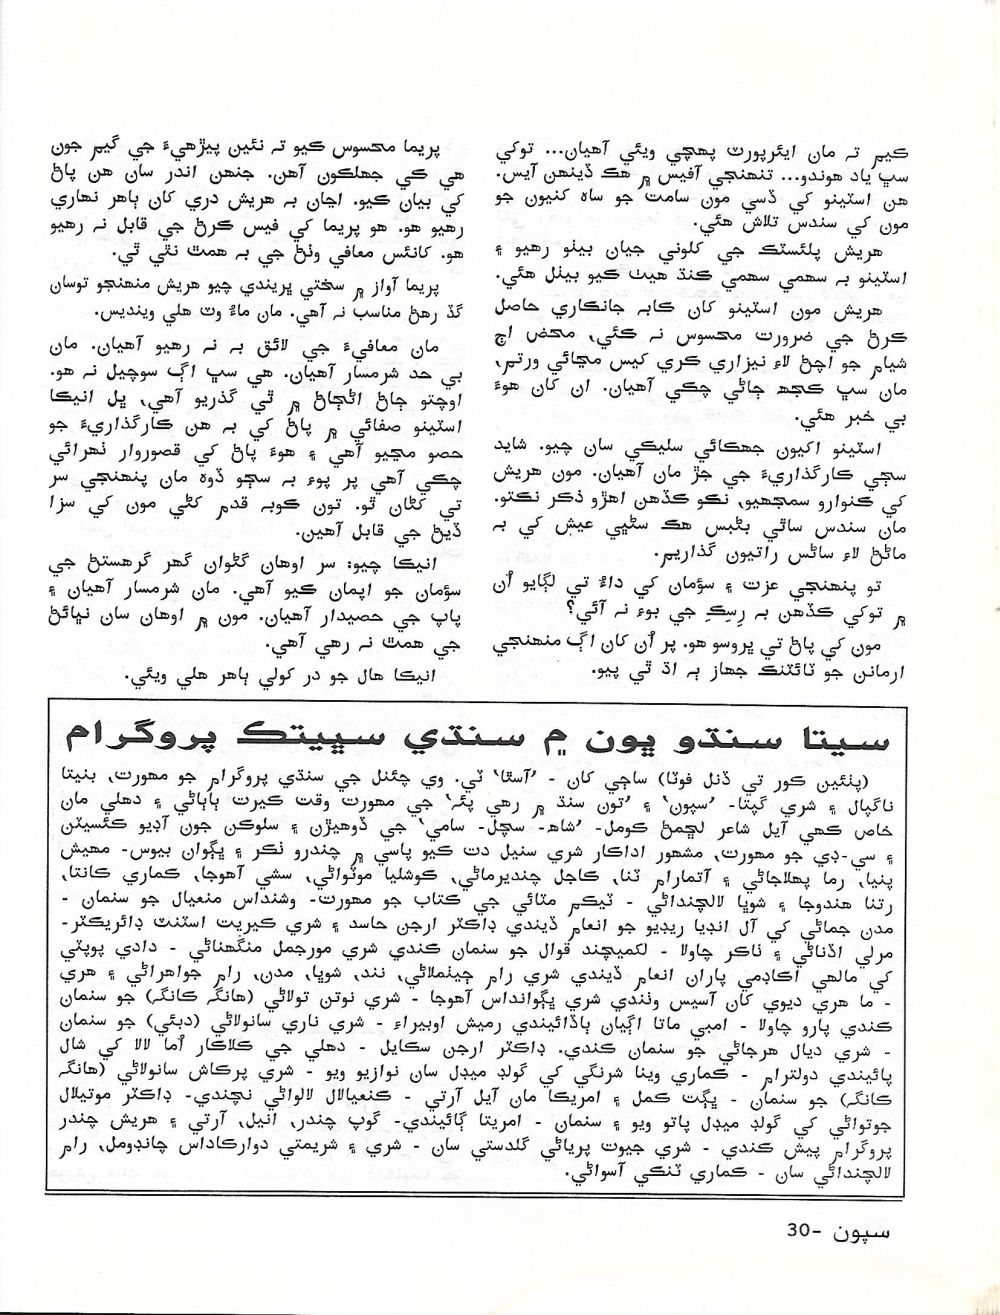 ڪيم تہ مان ايئرپورٽ پهچي ويئي آهيان... توکي
سڀ ياد هوندو... تنهنجي آفيس ۾ هڪ ڏينهن آيس.
هن اسٽينو کي ڏسي مون سامت جو ساھ کنيون جو
مون کي سندس تلاش هئي.
هريش پلئسٽڪ جي کلوني جيان بيٺو رهيو ۽
اسٽينو بہ سهمي سهمي ڪنڌ هيٺ ڪيو بيٺل هئي.
هريش مون اسٽينو کان ڪابہ جانڪاري حاصل
ڪرڻ جي ضرورت محسوس نہ ڪئي، محض اڄ
شيام جو اچڻ لاءِ نيزاري ڪري کيس مڃائي ورتم،
مان سڀ ڪجھ ڄاڻي چڪي آهيان. ان کان هوءَ
بي خبر هئي.
اسٽينو اکيون جهڪائي سليڪي سان چيو. شايد
سڄي ڪارگذاريءَ جي جڙ مان آهيان. مون هريش
کي ڪنوارو سمجهيو، نڪو ڪڏهن اهڙو ذڪر نڪتو.
مان سندس ساٿي بڻبس هڪ سڻيي عيش کي بہ
ماڻڻ لاءِ ساڻس راتيون گذاريم.
تو پنهنجي عزت ۽ سؤمان کي داءُ تي لڳايو اُن
۾ توکي ڪڏهن بہ رِسِڪِ جي بوءِ نہ آئي؟
مون کي پاڻ تي ڀروسو هو. پر اُن کان اڳ منهنجي
ارمانن جو ٽائٽنڪ جهاز بہ اڌ ٿي پيو.
پريما محسوس ڪيو تہ نئين پيڙهيءَ جي گيم جون
هي ڪي جهلڪون آهن. جنهن اندر سان هن پاڻ
کي بيان ڪيو. اڃان بہ هريش دري کان ٻاهر نهاري
رهيو هو. هو پريما کي فيس ڪرڻ جي قابل نہ رهيو
هو. کائنس معافي وٺڻ جي بہ همت نٿي ٿي.
پريما آواز ۾ سختي ڀريندي چيو هريش منهنجو توسان
گڏ رهڻ مناسب نہ آهي. مان ماءُ وٽ هلي وينديس.
مان معافيءَ جي لائق بہ نہ رهيو آهيان. مان
بي حد شرمسار آهيان. هي سڀ اڳ سوچيل نہ هو.
اوچتو ڄاڻ اڻڄاڻ ۾ ٿي گذريو آهي، ڀل انيڪا
اسٽينو صفائي ۾ پاڻ کي بہ هن ڪارگذاريءَ جو
حصو مڃيو آهي ۽ هوءَ پاڻ کي قصوروار ٺهرائي
چڪي آهي پر پوءِ بہ سڄو ڏوھ مان پنهنجي سر
تي کڻان ٿو. تون ڪوبہ قدم کڻي مون کي سزا
ڏيڻ جي قابل آهين.
انيڪا چيو: سر اوهان گڻوان گهر گرهستڻ جي
سؤمان جو اپمان ڪيو آهي. مان شرمسار آهيان ۽
پاپ جي حصيدار آهيان. مون ۾ اوهان سان نڀائڻ
جي همت نہ رهي آهي.
انيڪا هال جو در کولي ٻاهر هلي ويئي.
سيتا سنڌو ڀون ۾ سنڌي سڀيتڪ پروگرام
(پٺئين ڪور تي ڏنل فوٽا) ساڄي کان - 'آسٿا' ٽي. وي چئنل جي سنڌي پروگرام جو مهورت، بنيتا
ناگپال ۽ شري گپتا- 'سپون' ۽ 'تون سنڌ ۾ رهي پئہ' جي مهورت وقت ڪيرت ٻاٻاڻي ۽ دهلي مان
خاص ڪهي آيل شاعر لڇمڻ ڪومل- 'شاھ- سچل- سامي' جي ڏوهيڙن ۽ سلوڪن جون آڊيو ڪئسيٽن
۽ سي-ڊي جو مهورت، مشهور اداڪار شري سنيل دت ڪيو پاسي ۾ چندرو ٺڪر ۽ ڀڳوان بيوس- مهيش
پنيا، رما ڀهلاجاڻي ۽ آتمارام ٽنا، ڪاجل چنديرماڻي، ڪوشليا موٽواڻي، سشي آهوجا، ڪماري ڪانتا،
رتنا هندوجا ۽ شوڀا لالچنداڻي - ٽيڪم مٽائي جي ڪتاب جو مهورت- وشنداس منعيال جو سنمان -
مدن جماڻي کي آل انڊيا ريڊيو جو انعام ڏيندي ڊاڪٽر ارجن حاسد ۽ شري ڪيريت اسٽنٽ ڊائريڪٽر-
مرلي اڏناڻي ۽ ٺاڪر چاولا - لکميچند قوال جو سنمان ڪندي شري مورجمل منگهناڻي - دادي پوپٽي
کي مالهي اڪاڊمي پاران انعام ڏيندي شري رام جيٺملاڻي، نند، شوڀا، مدن، رام جواهراڻي ۽ هري
- ما هري ديوي کان آسيس وٺندي شري ڀڳوانداس آهوجا - شري نوتن تولاڻي (هانگہ کانگہ) جو سنمان
ڪندي پارو چاولا - امبي ماتا اڳيان ٻاڏائيندي رميش اوبيراءِ - شري ناري سانولاڻي (دبئي) جو سنمان
- شري ديال هرجاڻي جو سنمان ڪندي. ڊاڪٽر ارجن سڪايل - دهلي جي ڪلاڪار اُما لالا کي شال
پائيندي دولترام - ڪماري وينا شرنگي کي گولڊ ميڊل سان نوازيو ويو - شري پرڪاش سانولاڻي (هانگہ
کانگہ) جو سنمان - ڀڳت ڪمل ۽ امريڪا مان آيل آرتي - ڪنعيالال لالواڻي نچندي- ڊاڪٽر موتيلال
جوتواڻي کي گولڊ ميڊل پاتو ويو ۽ سنمان - امريتا ڳائيندي- گوپ چندر، انيل، آرتي ۽ هريش چندر
پروگرام پيش ڪندي - شري جيوت پرياڻي گلدستي سان - شري ۽ شريمتي دوارڪاداس چاندومل، رام
لالچنداڻي سان - ڪماري ٽنڪي آسواڻي.
سپون -30